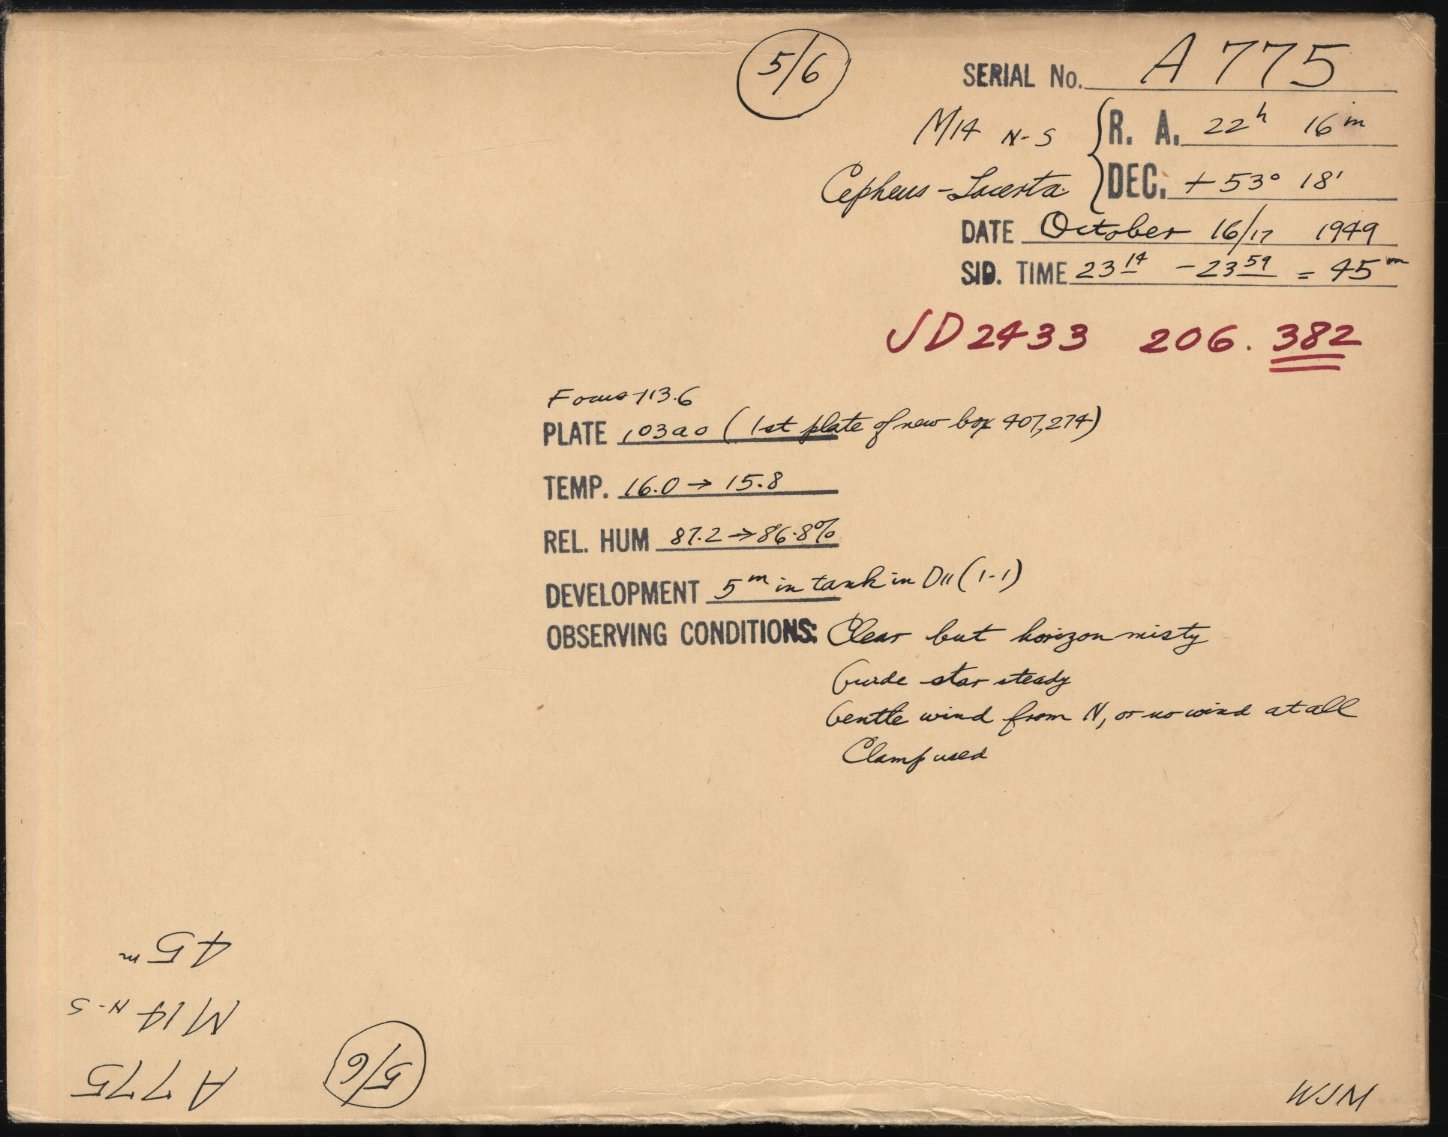 5/6
SERIAL No. A 775
M14 N-S { R. A. 22h 16m
Cepheus-Lacerta DEC. +53° 18'
DATE October 16/17 1949
SID. TIME 23 14 - 23 59 = 45m
JD 2433 206.382
Focus 113.6
PLATE 103aO (1st plate of new box 407,274)
TEMP. 16.0 → 15.8
REL. HUM 87.2 → 86.8%
DEVELOPMENT 5m in tank in D11 (1-1)
OBSERVING CONDITIONS: Clear but horizon misty
Guide star steady
Gentle wind from N, or no wind at all
Clamp used
A775
M14 N-S
45m
5/6
WJM